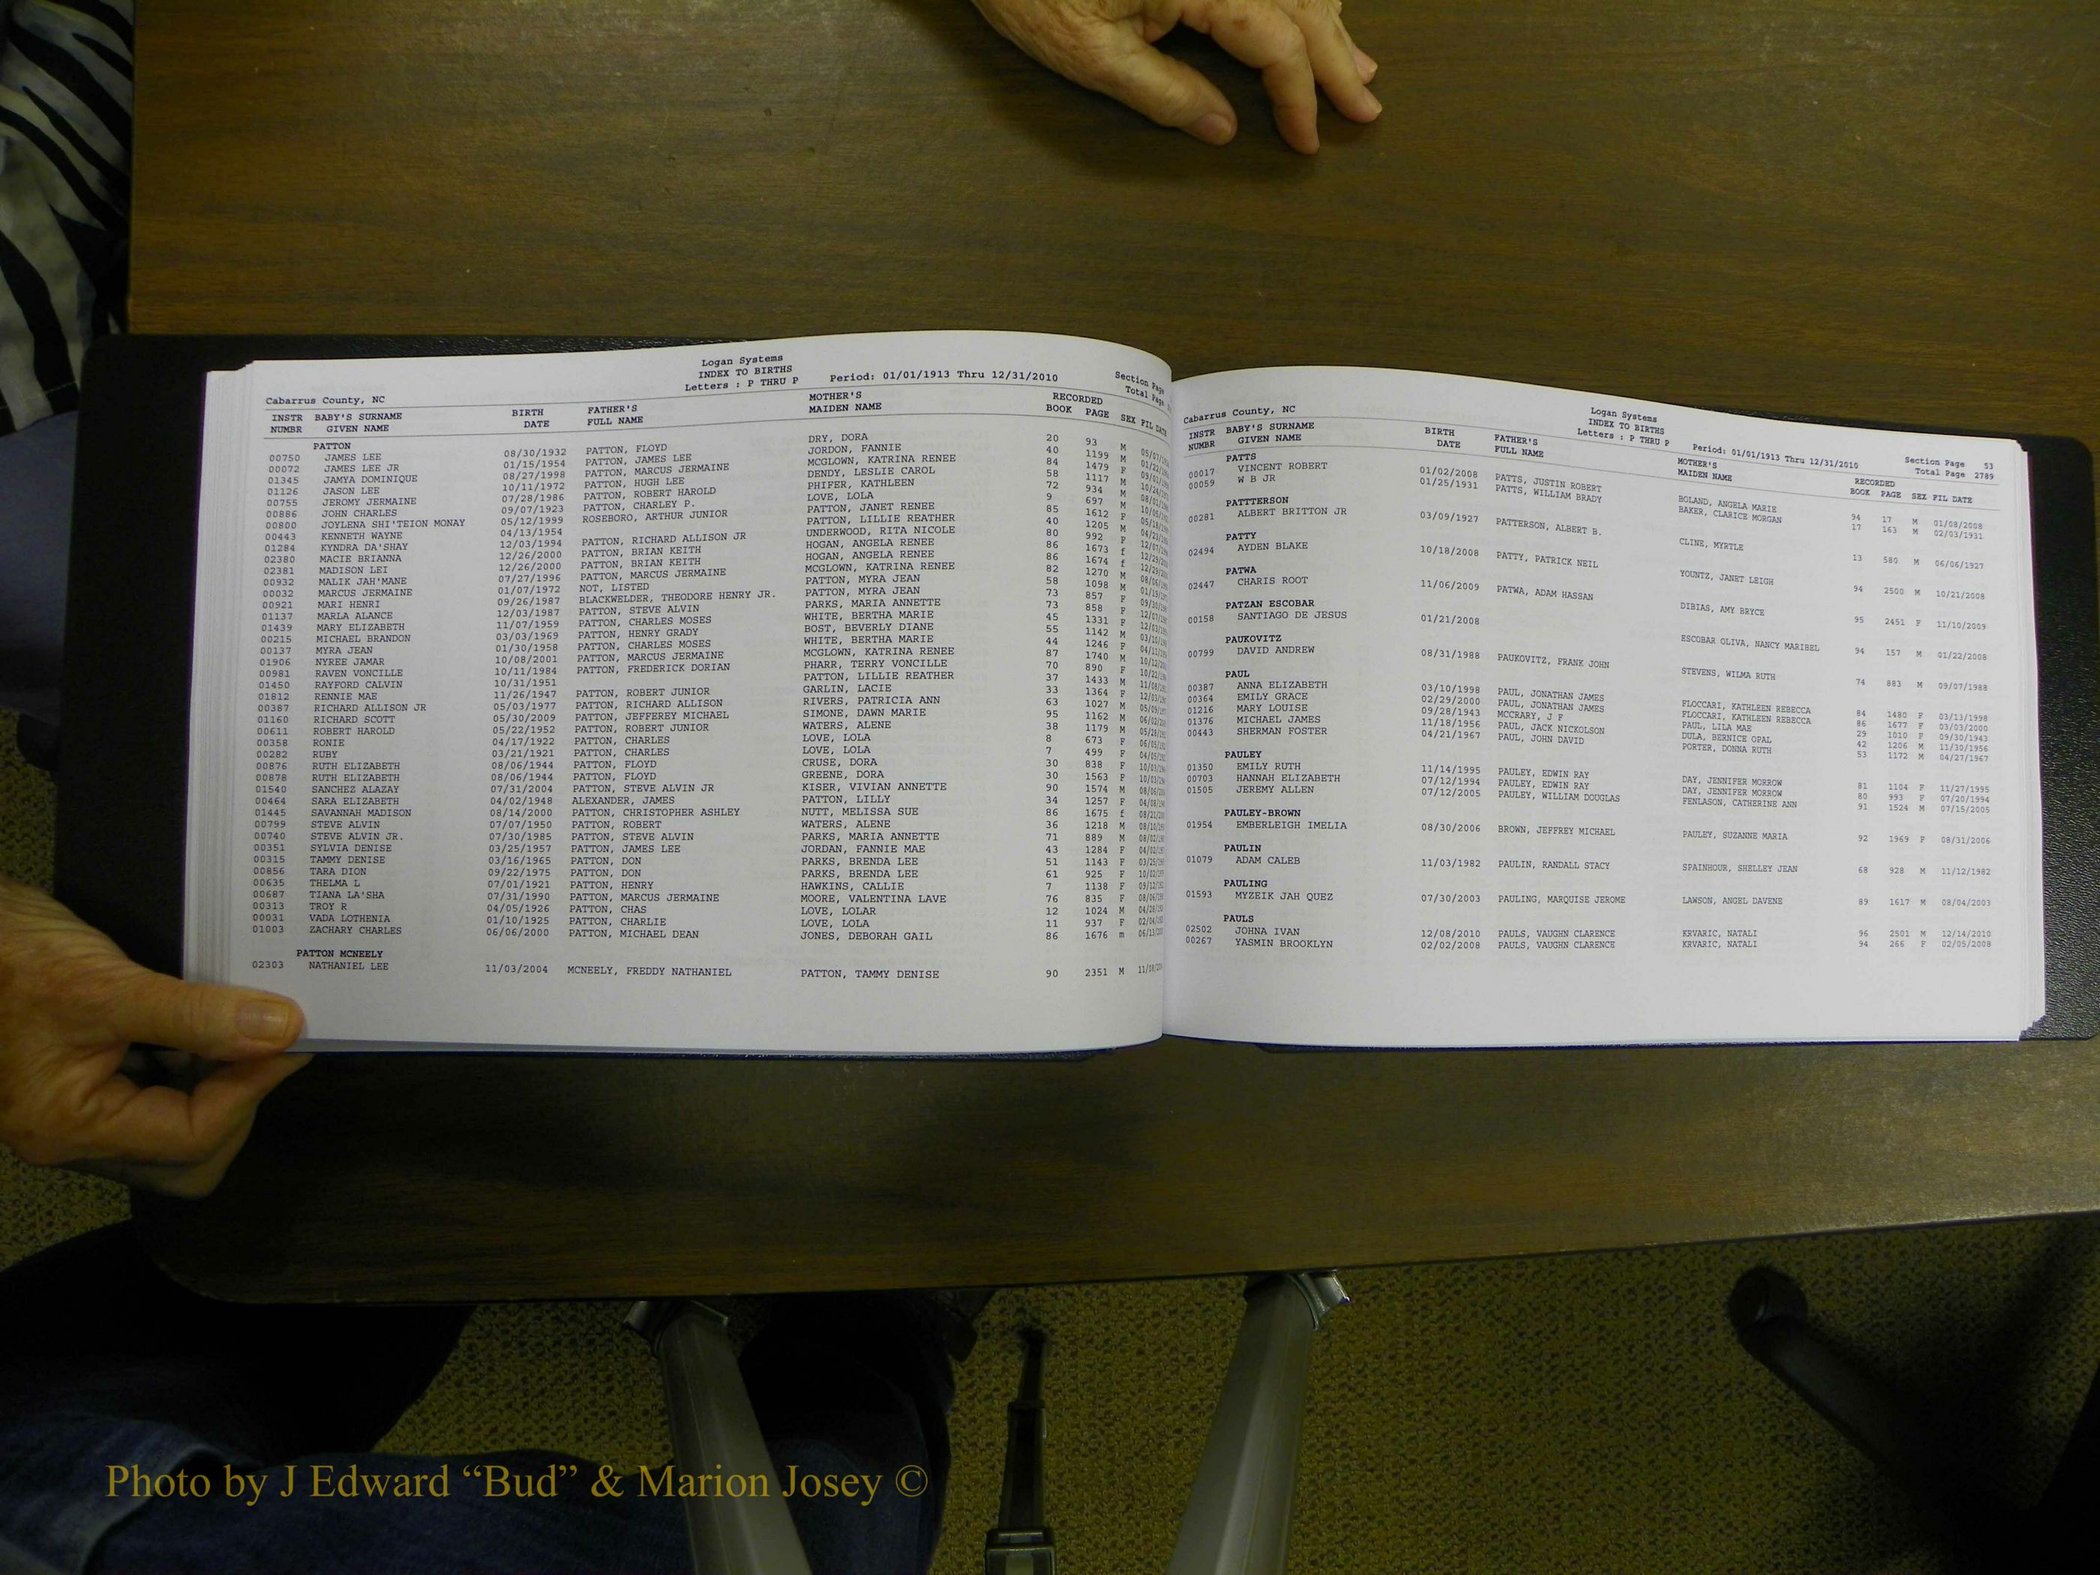 Logan Systems
INDEX TO BIRTHS
Letters : P THRU P Period: 01/01/1913 Thru 12/31/2010 Section Page
Total Page
Cabarrus County, NC
INSTR BABY'S SURNAME BIRTH FATHER'S MOTHER'S RECORDED
NUMBR GIVEN NAME DATE FULL NAME MAIDEN NAME BOOK PAGE SEX FIL DATE
PATTON
00750 JAMES LEE 08/30/1932 PATTON, FLOYD DRY, DORA 20 93 M
00072 JAMES LEE JR 01/15/1954 PATTON, JAMES LEE JORDON, FANNIE 40 1199 M
01345 JAMYA DOMINIQUE 08/27/1998 PATTON, MARCUS JERMAINE MCGLOWN, KATRINA RENEE 84 1479 F
01126 JASON LEE 10/11/1972 PATTON, HUGH LEE DENDY, LESLIE CAROL 58 1117 M
00755 JEROMY JERMAINE 07/28/1986 PATTON, ROBERT HAROLD PHIFER, KATHLEEN 72 934 M
00886 JOHN CHARLES 09/07/1923 PATTON, CHARLEY P. LOVE, LOLA 9 697 M
00800 JOYLENA SHI'TEION MONAY 05/12/1999 ROSEBORO, ARTHUR JUNIOR PATTON, JANET RENEE 85 1612 F
00443 KENNETH WAYNE 04/13/1954 PATTON, LILLIE REATHER 40 1205 M
01284 KYNDRA DA'SHAY 12/03/1994 PATTON, RICHARD ALLISON JR UNDERWOOD, RITA NICOLE 80 992 F
02380 MACIE BRIANNA 12/26/2000 PATTON, BRIAN KEITH HOGAN, ANGELA RENEE 86 1673 f
02381 MADISON LEI 12/26/2000 PATTON, BRIAN KEITH HOGAN, ANGELA RENEE 86 1674 f
00932 MALIK JAH'MANE 07/27/1996 PATTON, MARCUS JERMAINE MCGLOWN, KATRINA RENEE 82 1270 M
00032 MARCUS JERMAINE 01/07/1972 NOT, LISTED PATTON, MYRA JEAN 58 1098 M
00921 MARI HENRI 09/26/1987 BLACKWELDER, THEODORE HENRY JR. PATTON, MYRA JEAN 73 857 F
01137 MARLA ALANCE 12/03/1987 PATTON, STEVE ALVIN PARKS, MARIA ANNETTE 73 858 F
01439 MARY ELIZABETH 11/07/1959 PATTON, CHARLES MOSES WHITE, BERTHA MARIE 45 1331 F
00215 MICHAEL BRANDON 03/03/1969 PATTON, HENRY GRADY BOST, BEVERLY DIANE 55 1142 M
00137 MYRA JEAN 01/30/1958 PATTON, CHARLES MOSES WHITE, BERTHA MARIE 44 1246 F
01906 NYREE JAMAR 10/08/2001 PATTON, MARCUS JERMAINE MCGLOWN, KATRINA RENEE 87 1740 M
00981 RAVEN VONCILLE 10/11/1984 PATTON, FREDERICK DORIAN PHARR, TERRY VONCILLE 70 890 F
01450 RAYFORD CALVIN 10/31/1951 PATTON, LILLIE REATHER 37 1433 M
01812 RENNIE MAE 11/26/1947 PATTON, ROBERT JUNIOR GARLIN, LACIE 33 1364 F
00387 RICHARD ALLISON JR 05/03/1977 PATTON, RICHARD ALLISON RIVERS, PATRICIA ANN 63 1027 M
01160 RICHARD SCOTT 05/30/2009 PATTON, JEFFEREY MICHAEL SIMONE, DAWN MARIE 95 1162 M
00611 ROBERT HAROLD 05/22/1952 PATTON, ROBERT JUNIOR WATERS, ALENE 38 1179 M
00358 RONIE 04/17/1922 PATTON, CHARLES LOVE, LOLA 8 673 F
00282 RUBY 03/21/1921 PATTON, CHARLES LOVE, LOLA 7 499 F
00876 RUTH ELIZABETH 08/06/1944 PATTON, FLOYD CRUSE, DORA 30 838 F
00878 RUTH ELIZABETH 08/06/1944 PATTON, FLOYD GREENE, DORA 30 1563 F
01540 SANCHEZ ALAZAY 07/31/2004 PATTON, STEVE ALVIN JR KISER, VIVIAN ANNETTE 90 1574 M
00464 SARA ELIZABETH 04/02/1948 ALEXANDER, JAMES PATTON, LILLY 34 1257 F
01445 SAVANNAH MADISON 08/14/2000 PATTON, CHRISTOPHER ASHLEY NUTT, MELISSA SUE 86 1675 f
00799 STEVE ALVIN 07/07/1950 PATTON, ROBERT WATERS, ALENE 36 1218 M
00740 STEVE ALVIN JR. 07/30/1985 PATTON, STEVE ALVIN PARKS, MARIA ANNETTE 71 889 M
00351 SYLVIA DENISE 03/25/1957 PATTON, JAMES LEE JORDAN, FANNIE MAE 43 1284 F
00315 TAMMY DENISE 03/16/1965 PATTON, DON PARKS, BRENDA LEE 51 1143 F
00856 TARA DION 09/22/1975 PATTON, DON PARKS, BRENDA LEE 61 925 F
00635 THELMA L 07/01/1921 PATTON, HENRY HAWKINS, CALLIE 7 1138 F
00687 TIANA LA'SHA 07/31/1990 PATTON, MARCUS JERMAINE MOORE, VALENTINA LAVE 76 835 F
00313 TROY R 04/05/1926 PATTON, CHAS LOVE, LOLAR 12 1024 M
00031 VADA LOTHENIA 01/10/1925 PATTON, CHARLIE LOVE, LOLA 11 937 F
01003 ZACHARY CHARLES 06/06/2000 PATTON, MICHAEL DEAN JONES, DEBORAH GAIL 86 1676 m
PATTON MCNEELY
02303 NATHANIEL LEE 11/03/2004 MCNEELY, FREDDY NATHANIEL PATTON, TAMMY DENISE 90 2351 M
Logan Systems
INDEX TO BIRTHS
Letters : P THRU P Period: 01/01/1913 Thru 12/31/2010 Section Page 53
Total Page 2789
Cabarrus County, NC
INSTR BABY'S SURNAME BIRTH FATHER'S MOTHER'S RECORDED
NUMBR GIVEN NAME DATE FULL NAME MAIDEN NAME BOOK PAGE SEX FIL DATE
PATTS
00017 VINCENT ROBERT 01/02/2008 PATTS, JUSTIN ROBERT BOLAND, ANGELA MARIE 94 17 M 01/08/2008
00059 W B JR 01/25/1931 PATTS, WILLIAM BRADY BAKER, CLARICE MORGAN 17 163 M 02/03/1931
PATTTERSON
00281 ALBERT BRITTON JR 03/09/1927 PATTERSON, ALBERT B. CLINE, MYRTLE 13 580 M 06/06/1927
PATTY
02494 AYDEN BLAKE 10/18/2008 PATTY, PATRICK NEIL YOUNTZ, JANET LEIGH 94 2500 M 10/21/2008
PATWA
02447 CHARIS ROOT 11/06/2009 PATWA, ADAM HASSAN DIBIAS, AMY BRYCE 95 2451 F 11/10/2009
PATZAN ESCOBAR
00158 SANTIAGO DE JESUS 01/21/2008 ESCOBAR OLIVA, NANCY MARIBEL 94 157 M 01/22/2008
PAUKOVITZ
00799 DAVID ANDREW 08/31/1988 PAUKOVITZ, FRANK JOHN STEVENS, WILMA RUTH 74 883 M 09/07/1988
PAUL
00387 ANNA ELIZABETH 03/10/1998 PAUL, JONATHAN JAMES FLOCCARI, KATHLEEN REBECCA 84 1480 F 03/13/1998
00364 EMILY GRACE 02/29/2000 PAUL, JONATHAN JAMES FLOCCARI, KATHLEEN REBECCA 86 1677 F 03/03/2000
01216 MARY LOUISE 09/28/1943 MCCRARY, J F PAUL, LILA MAE 29 1010 F 09/30/1943
01376 MICHAEL JAMES 11/18/1956 PAUL, JACK NICKOLSON DULA, BERNICE OPAL 42 1206 M 11/30/1956
00443 SHERMAN FOSTER 04/21/1967 PAUL, JOHN DAVID PORTER, DONNA RUTH 53 1172 M 04/27/1967
PAULEY
01350 EMILY RUTH 11/14/1995 PAULEY, EDWIN RAY DAY, JENNIFER MORROW 81 1104 F 11/27/1995
00703 HANNAH ELIZABETH 07/12/1994 PAULEY, EDWIN RAY DAY, JENNIFER MORROW 80 993 F 07/20/1994
01505 JEREMY ALLEN 07/12/2005 PAULEY, WILLIAM DOUGLAS FENLASON, CATHERINE ANN 91 1524 M 07/15/2005
PAULEY-BROWN
01954 EMBERLEIGH IMELIA 08/30/2006 BROWN, JEFFREY MICHAEL PAULEY, SUZANNE MARIA 92 1969 F 08/31/2006
PAULIN
01079 ADAM CALEB 11/03/1982 PAULIN, RANDALL STACY SPAINHOUR, SHELLEY JEAN 68 928 M 11/12/1982
PAULING
01593 MYZEIK JAH QUEZ 07/30/2003 PAULING, MARQUISE JEROME LAWSON, ANGEL DAVENE 89 1617 M 08/04/2003
PAULS
02502 JOHNA IVAN 12/08/2010 PAULS, VAUGHN CLARENCE KRVARIC, NATALI 96 2501 M 12/14/2010
00267 YASMIN BROOKLYN 02/02/2008 PAULS, VAUGHN CLARENCE KRVARIC, NATALI 94 266 F 02/05/2008
Photo by J Edward “Bud” & Marion Josey ©